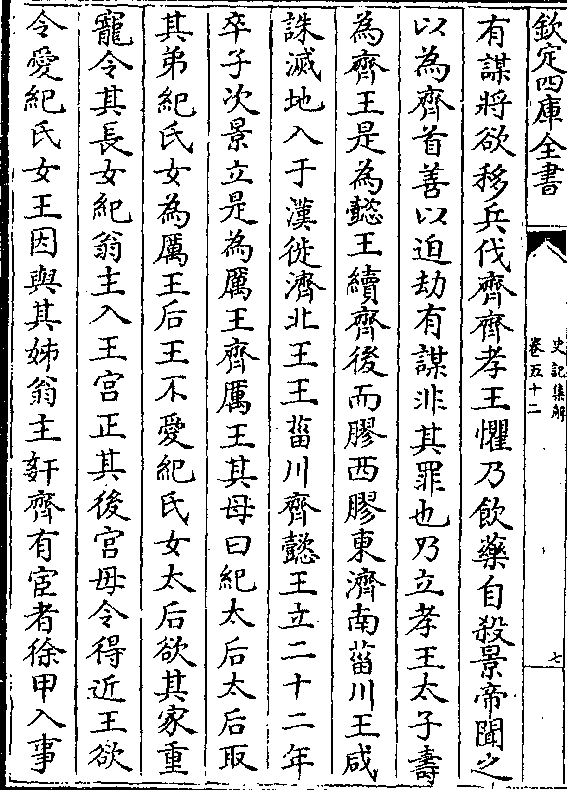 欽定四庫全書
史記集解
卷五十二
七
有謀將欲移兵伐齊齊孝王懼乃飲藥自殺景帝聞之
以為齊首善以迫劫有謀非其罪也乃立孝王太子壽
為齊王是為懿王續齊後而膠西膠東濟南菑川王咸
誅滅地入于漢徙濟北王王菑川齊懿王立二十二年
卒子次景立是為厲王齊厲王其母曰紀太后太后取
其弟紀氏女為厲王后王不愛紀氏女太后欲其家重
寵令其長女紀翁主入王宮正其後宮毋令得近王欲
令愛紀氏女王因與其姊翁主姧齊有宦者徐甲入事